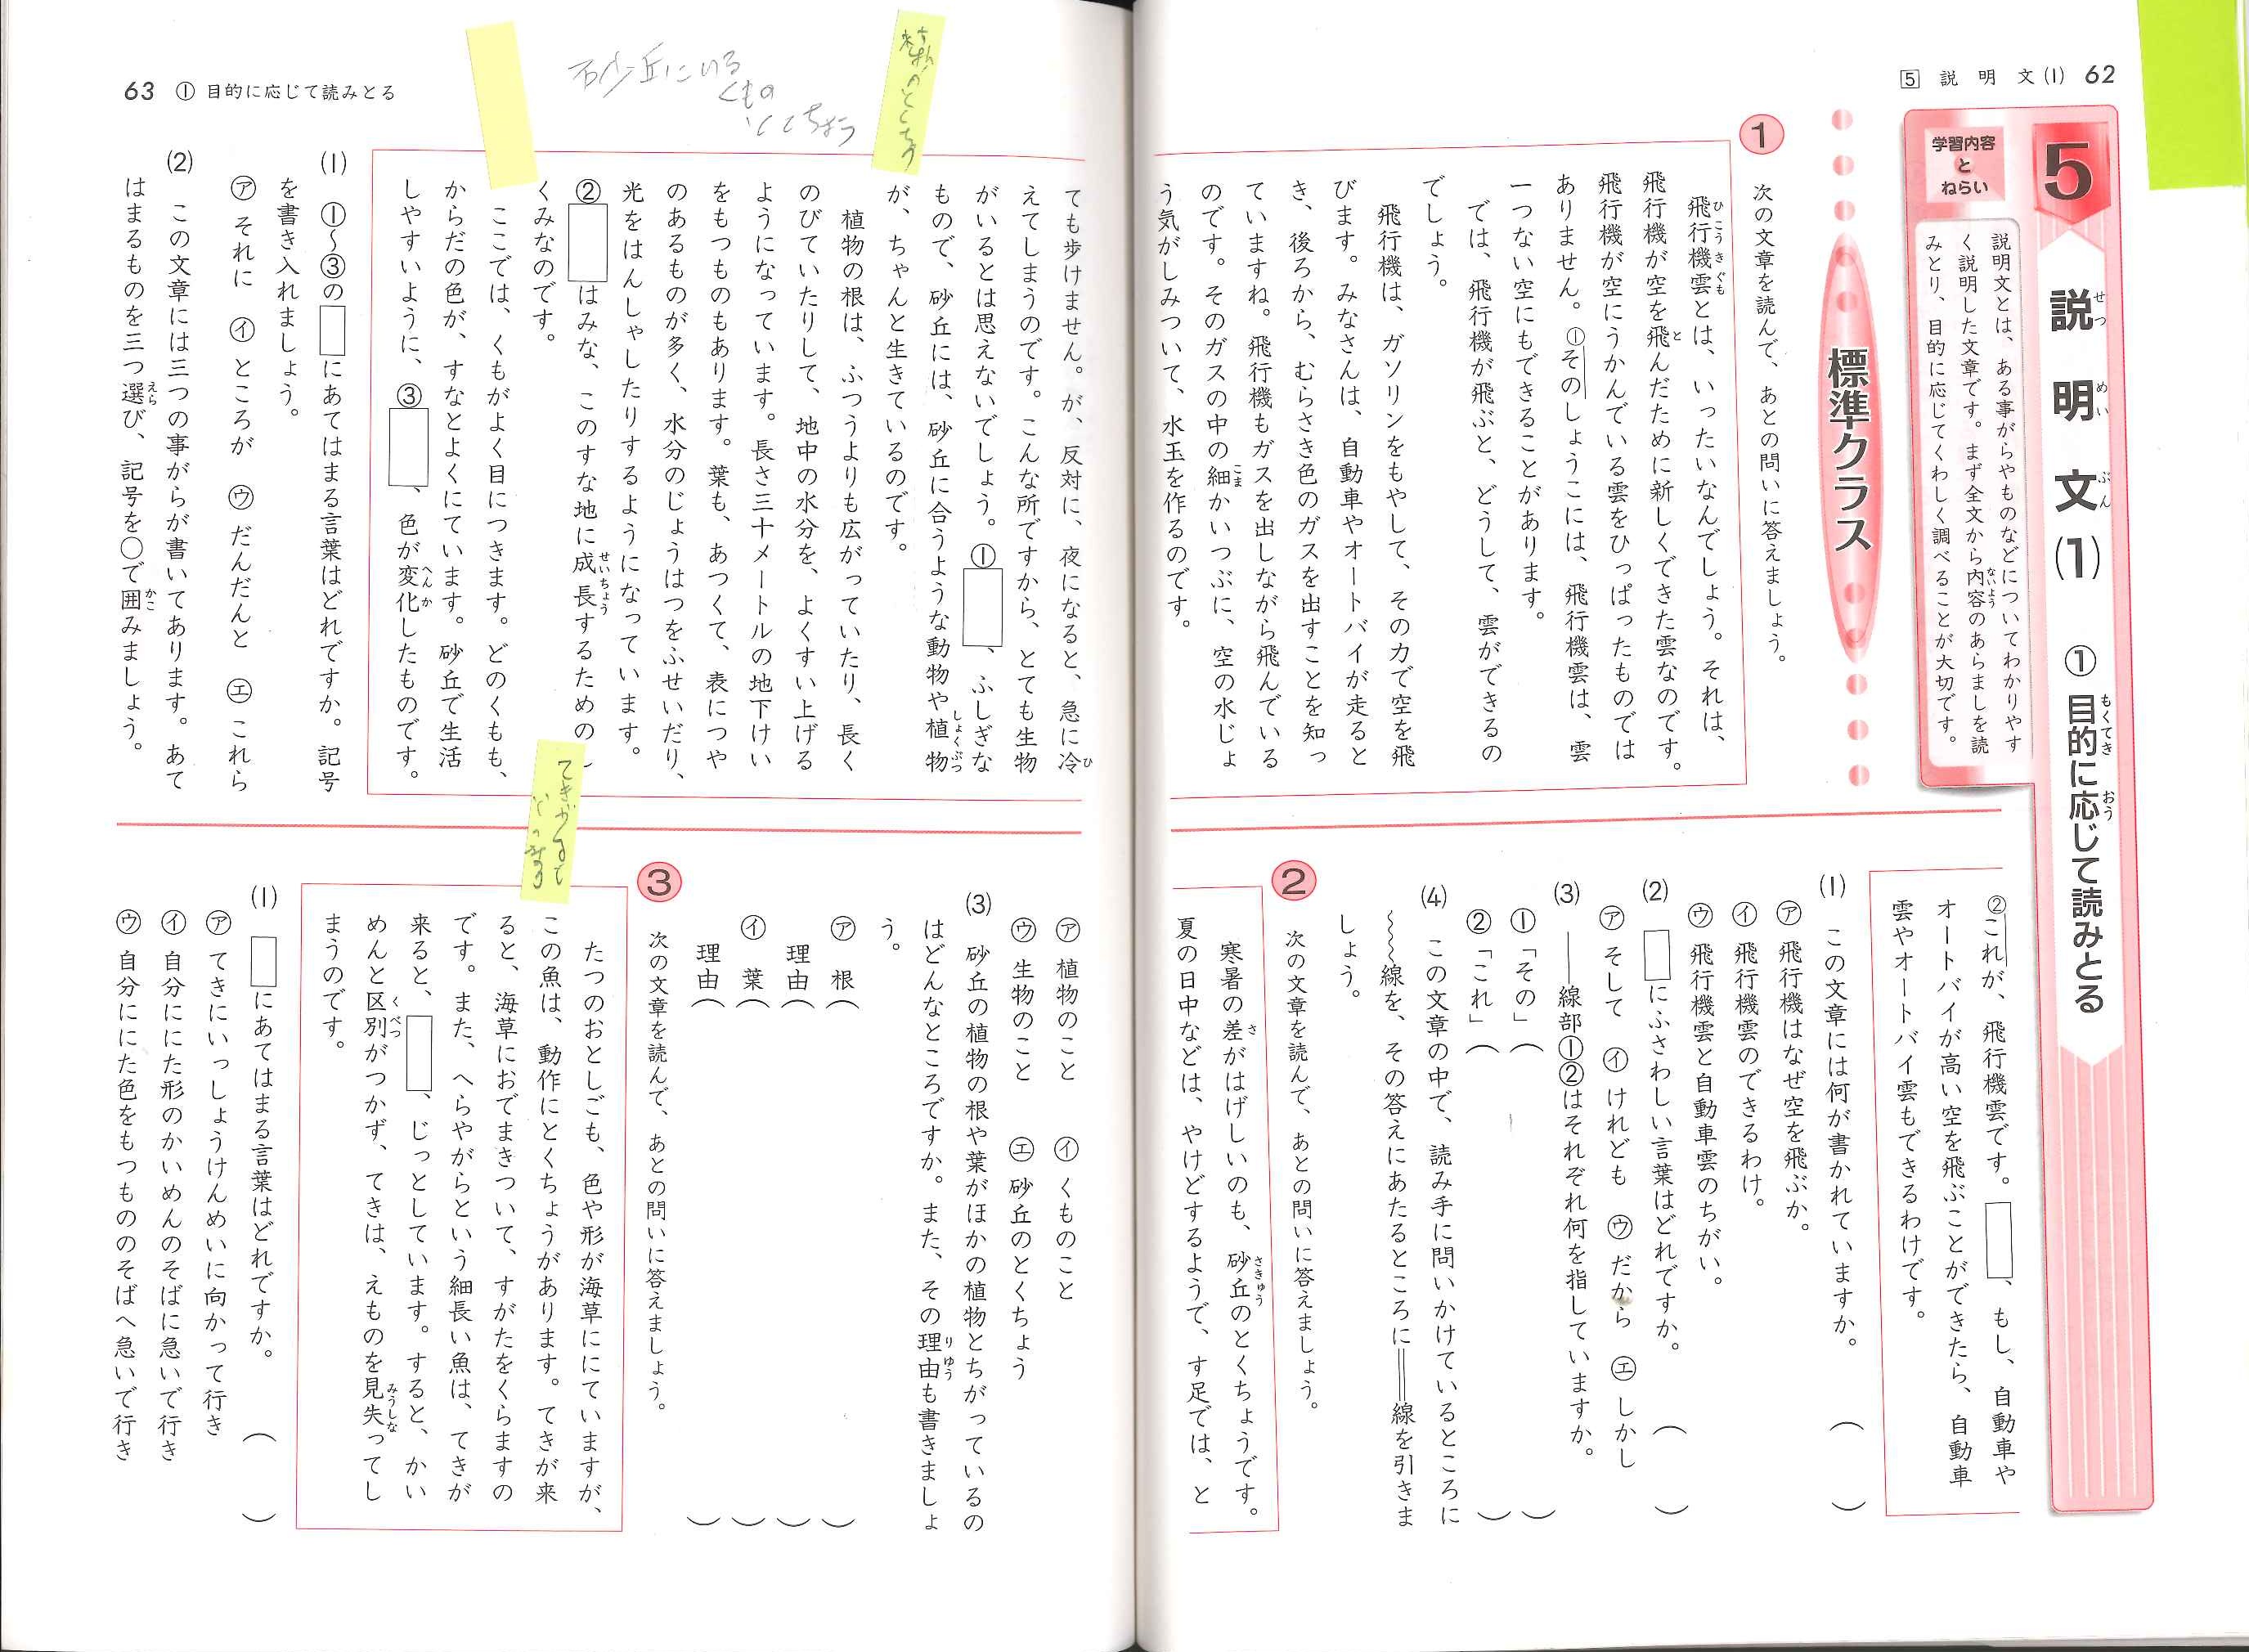 5 説明文(1) 62
5 説明文(1) ① 目的に応じて読みとる
せつ めい ぶん もくてき おう
学習内容
と
ねらい
説明文とは、ある事がらやものなどについてわかりやす
く説明した文章です。まず全文から内容のあらましを読
みとり、目的に応じてくわしく調べることが大切です。
標準クラス
1 次の文章を読んで、あとの問いに答えましょう。
飛行機雲とは、いったいなんでしょう。それは、
飛行機が空を飛んだために新しくできた雲なのです。
飛行機が空にうかんでいる雲をひっぱったものでは
ありません。①そのしょうこには、飛行機雲は、雲
一つない空にもできることがあります。
では、飛行機が飛ぶと、どうして、雲ができるの
でしょう。
飛行機は、ガソリンをもやして、その力で空を飛
びます。みなさんは、自動車やオートバイが走ると
き、後ろから、むらさき色のガスを出すことを知っ
ていますね。飛行機もガスを出しながら飛んでいる
のです。そのガスの中の細かいつぶに、空の水じょ
う気がしみついて、水玉を作るのです。
②これが、飛行機雲です。□、もし、自動車や
オートバイが高い空を飛ぶことができたら、自動車
雲やオートバイ雲もできるわけです。
(1) この文章には何が書かれていますか。( )
㋐ 飛行機はなぜ空を飛ぶか。
㋑ 飛行機雲のできるわけ。
㋒ 飛行機雲と自動車雲のちがい。
(2) □にふさわしい言葉はどれですか。( )
㋐ そして ㋑ けれども ㋒ だから ㋓ しかし
(3) ――線部①②はそれぞれ何を指していますか。
①「その」( )
②「これ」( )
(4) この文章の中で、読み手に問いかけているところに
〜〜〜線を、その答えにあたるところに＝＝線を引きま
しょう。
2 次の文章を読んで、あとの問いに答えましょう。
寒暑の差がはげしいのも、砂丘のとくちょうです。
夏の日中などは、やけどするようで、す足では、と
63 ① 目的に応じて読みとる
砂丘にいる
くもの
とくちょう
ても歩けません。が、反対に、夜になると、急に冷
えてしまうのです。こんな所ですから、とても生物
がいるとは思えないでしょう。①□、ふしぎな
もので、砂丘には、砂丘に合うような動物や植物
が、ちゃんと生きているのです。
植物の根は、ふつうよりも広がっていたり、長く
のびていたりして、地中の水分を、よくすい上げる
ようになっています。長さ三十メートルの地下けい
をもつものもあります。葉も、あつくて、表につや
のあるものが多く、水分のじょうはつをふせいだり、
光をはんしゃしたりするようになっています。
②□はみな、このすな地に成長するための
くみなのです。
ここでは、くもがよく目につきます。どのくもも、
からだの色が、すなとよくにています。砂丘で生活
しやすいように、③□、色が変化したものです。
(1) ①～③の□にあてはまる言葉はどれですか。記号
を書き入れましょう。
㋐ それに ㋑ ところが ㋒ だんだんと ㋓ これら
(2) この文章には三つの事がらが書いてあります。あて
はまるものを三つ選び、記号を○で囲みましょう。
㋐ 植物のこと ㋑ くものこと
㋒ 生物のこと ㋓ 砂丘のとくちょう
(3) 砂丘の植物の根や葉がほかの植物とちがっているの
はどんなところですか。また、その理由も書きましょ
う。
㋐ 根( )
理由( )
㋑ 葉( )
理由( )
3 次の文章を読んで、あとの問いに答えましょう。
たつのおとしごも、色や形が海草ににていますが、
この魚は、動作にとくちょうがあります。てきが来
ると、海草におでまきついて、すがたをくらますの
です。また、へらやがらという細長い魚は、てきが
来ると、□、じっとしています。すると、かい
めんと区別がつかず、てきは、えものを見失ってし
まうのです。
(1) □にあてはまる言葉はどれですか。( )
㋐ てきにいっしょうけんめいに向かって行き
㋑ 自分ににた形のかいめんのそばに急いで行き
㋒ 自分ににた色をもつもののそばへ急いで行き